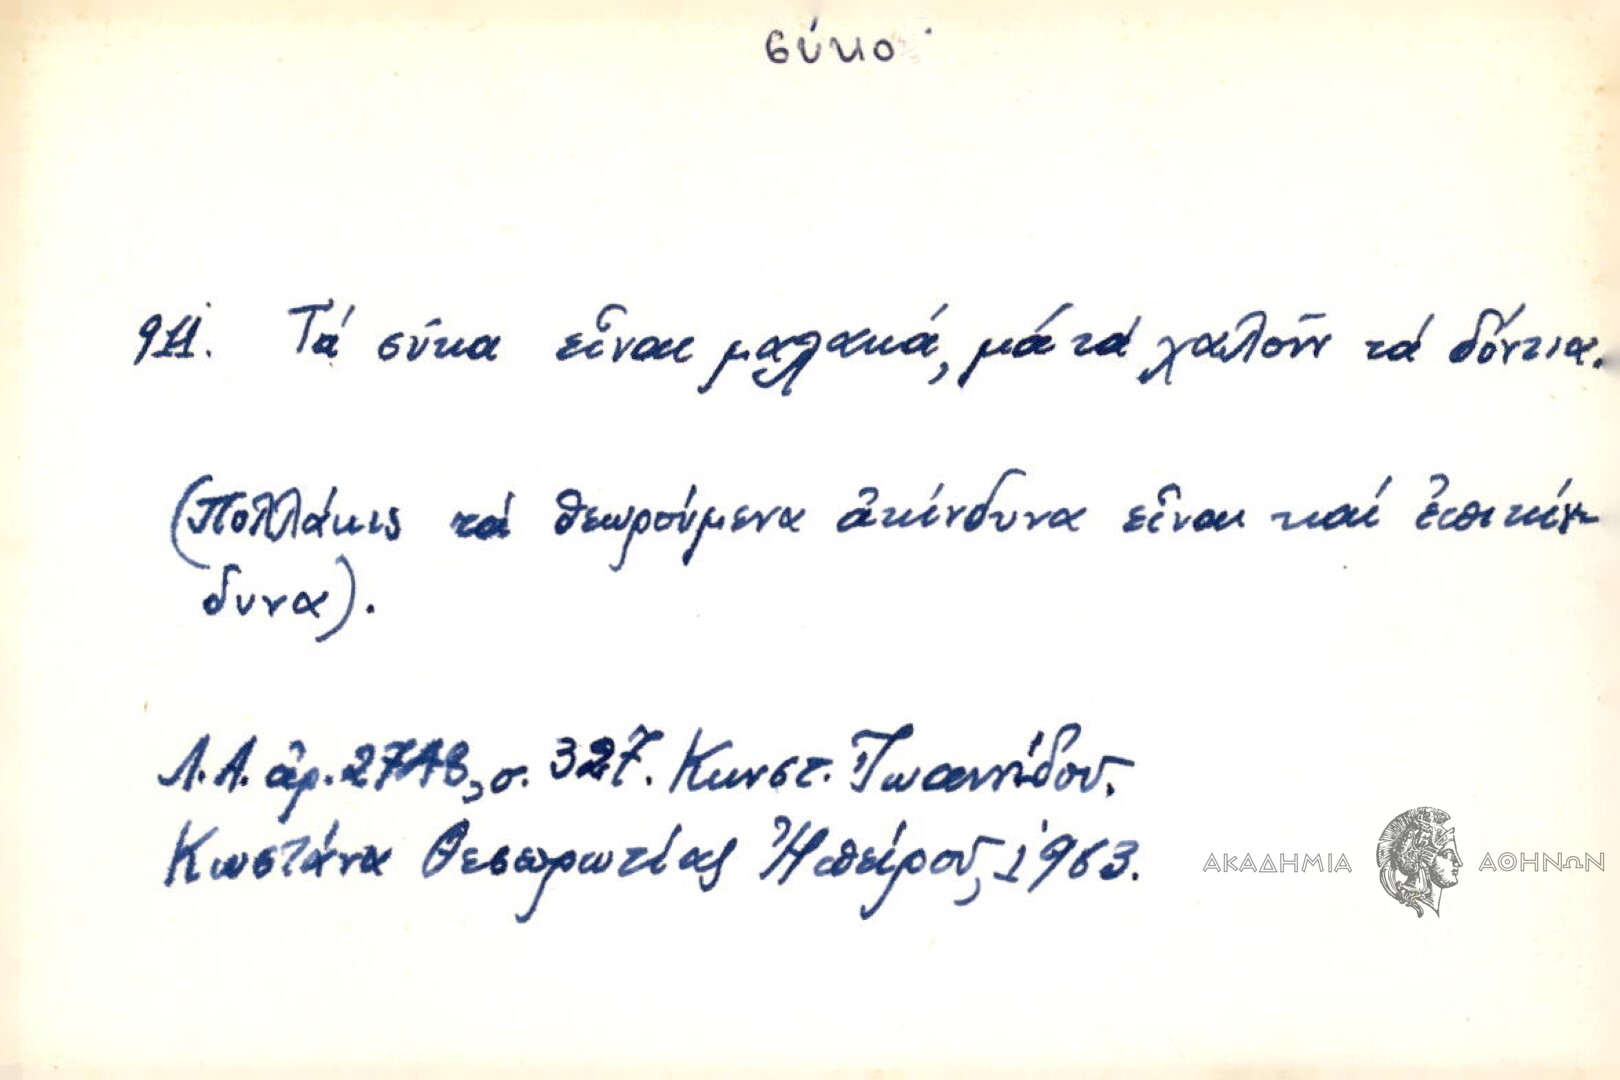 σύκο
911. Τά σύκα εἶναι μαλακά, μά τά χαλοῦν τά δόντια.
(Πολλάκις τά θεωρούμενα ἀκίνδυνα εἶναι καί ἐπικίν-
δυνα).
Λ.Α. ἀρ. 2748, σ. 327. Κωνστ. Ἰωαννίδου.
Κωστάνα Θεσπρωτίας Ἠπείρου, 1963.
ΑΚΑΔΗΜΙΑ ΑΘΗΝΩΝ